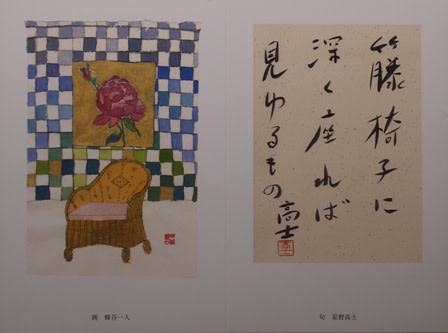 籐椅子に
深く座れば
見ゆるもの
高士
画　蜂谷一人
句　星野高士